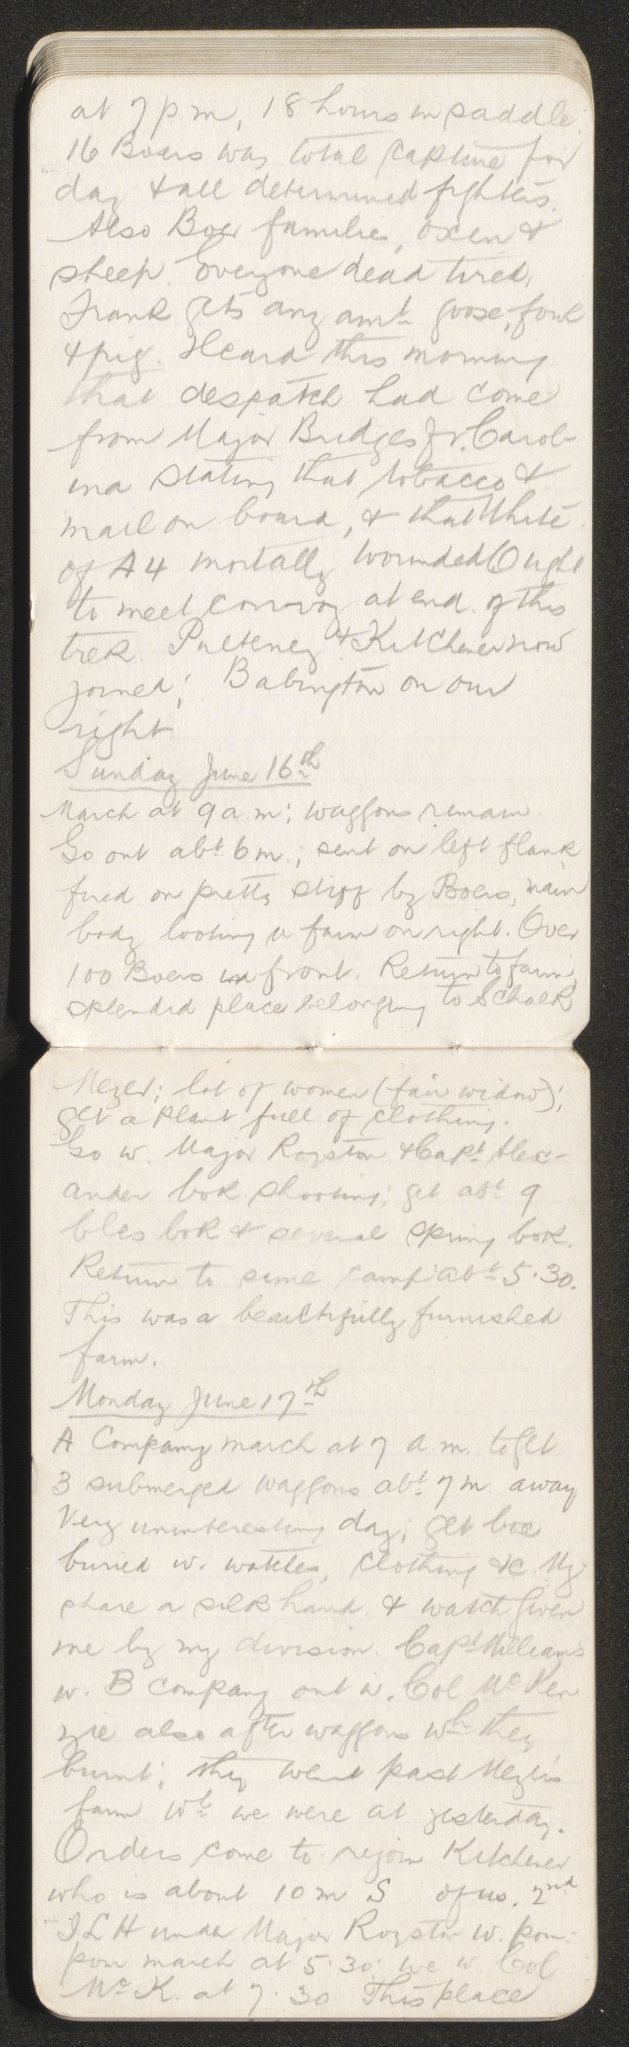 at 7 p m, 18 hours in saddle.
16 Boers was total capture for
day & all determined fighters.
Also Boer families, oxen &
sheep. Everyone dead tired,
Frank gets any amt goose, fowl
& pig. Heard this morning
that despatch had come
from Major Bridges fr. Carol-
ina stating that tobacco &
mail on board, & that White
of A4 mortally wounded. Ought
to meet convoy at end of this
trek. Pulteney & Kitchener now
joined; Babington on our
right.
Sunday June 16th
March at 9 a.m; waggons remain
Go out abt 6 m; sent on left flank
fired on pretty stiff by Boers, main
body looting a farm on right. Over
100 Boers in front. Return to farm,
splendid place belonging to Schalk
Mezer; lot of women (fair widow);
get a plant full of clothing.
Go w. Major Royston & Capt Alex-
ander bok shooting; get abt 9
bles bok & several spring bok.
Return to same camp abt 5.30.
This was a beautifully furnished
farm.
Monday June 17th
A Company march at 7 a.m. to get
3 submerged waggons abt 7 m away
Very uninteresting day; get box
buried w. watches, clothing &c. My
share a silk hand. & watch given
me by my division. Capt Williams
w. B company out w. Col McKen
zie also after waggons wh they
burnt; they went past Mezer's
farm wh we were at yesterday.
Orders come to rejoin Kitchener
who is about 10 m S of us. 2nd
I L H under Major Royston w. pom-
pom march at 5.30; we w. Col
Mc K. at 7.30 This place